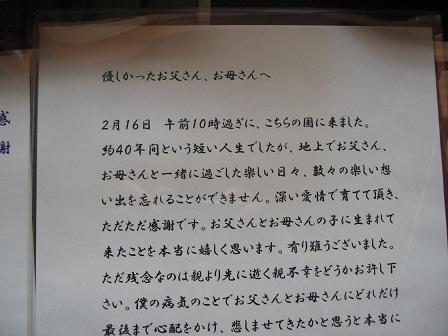 優しかったお父さん、お母さんへ
2月16日　午前10時過ぎに、こちらの国に来ました。
約40年间という短い人生でしたが、地上でお父さん、
お母さんと一緒に過ごした楽しい日々、数々の楽しい想
い出を忘れることができません。深い愛情で育てて頂き、
ただただ感謝です。お父さんとお母さんの子に生まれて
来たことを本当に嬉しく思います。有り難うございました。
ただ残念なのは親より先に逝く親不幸をどうかお許し下
さい。僕の病気のことでお父さんとお母さんにどれだけ
最後まで心配をかけ、悲しませてきたかと思うと本当に
感
謝